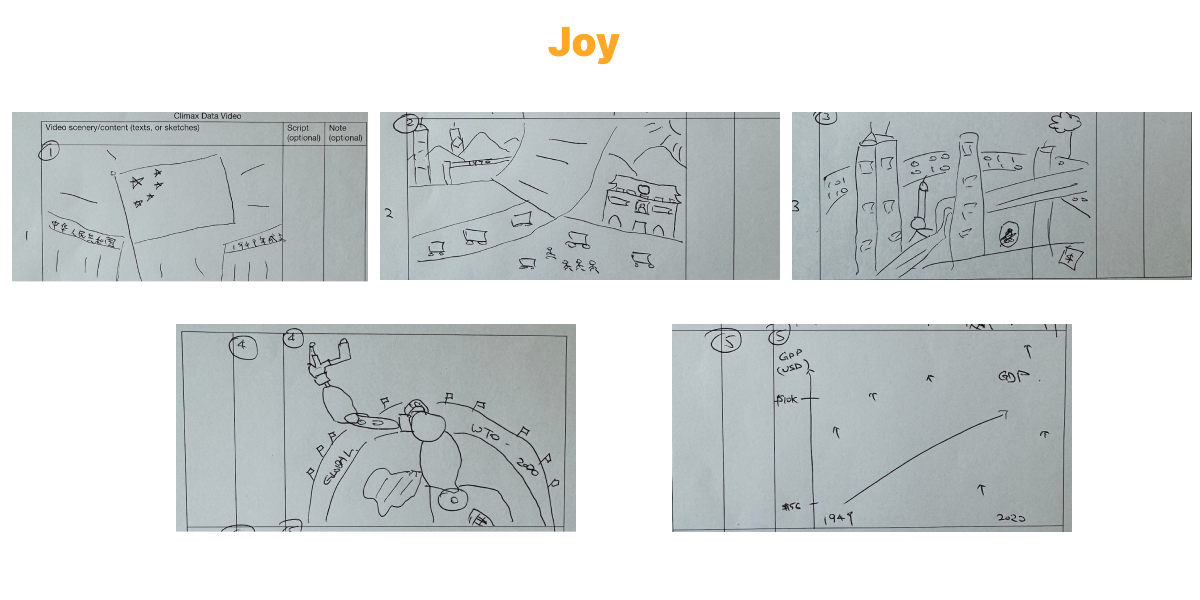 Joy
Climax Data Video
Video scenery/content (texts, or sketches)
Script (optional)
Note (optional)
1
1
中华人民共和国
1949年成立
2
2
3
3
$
4
4
GLOBAL
WTO
2000
5
5
GDP
(USD)
$10K
$56
1949
2020
GDP